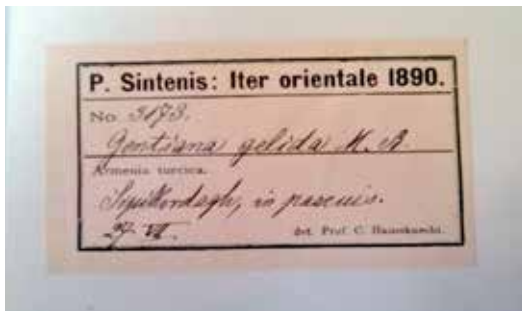 P. Sintenis: Iter orientale 1890.
No. 3173.
Gentiana gelida M. B.
Armenia turcica.
Sipikordagh, in pascuis.
27. VI.
det. Prof. C. Haussknecht.